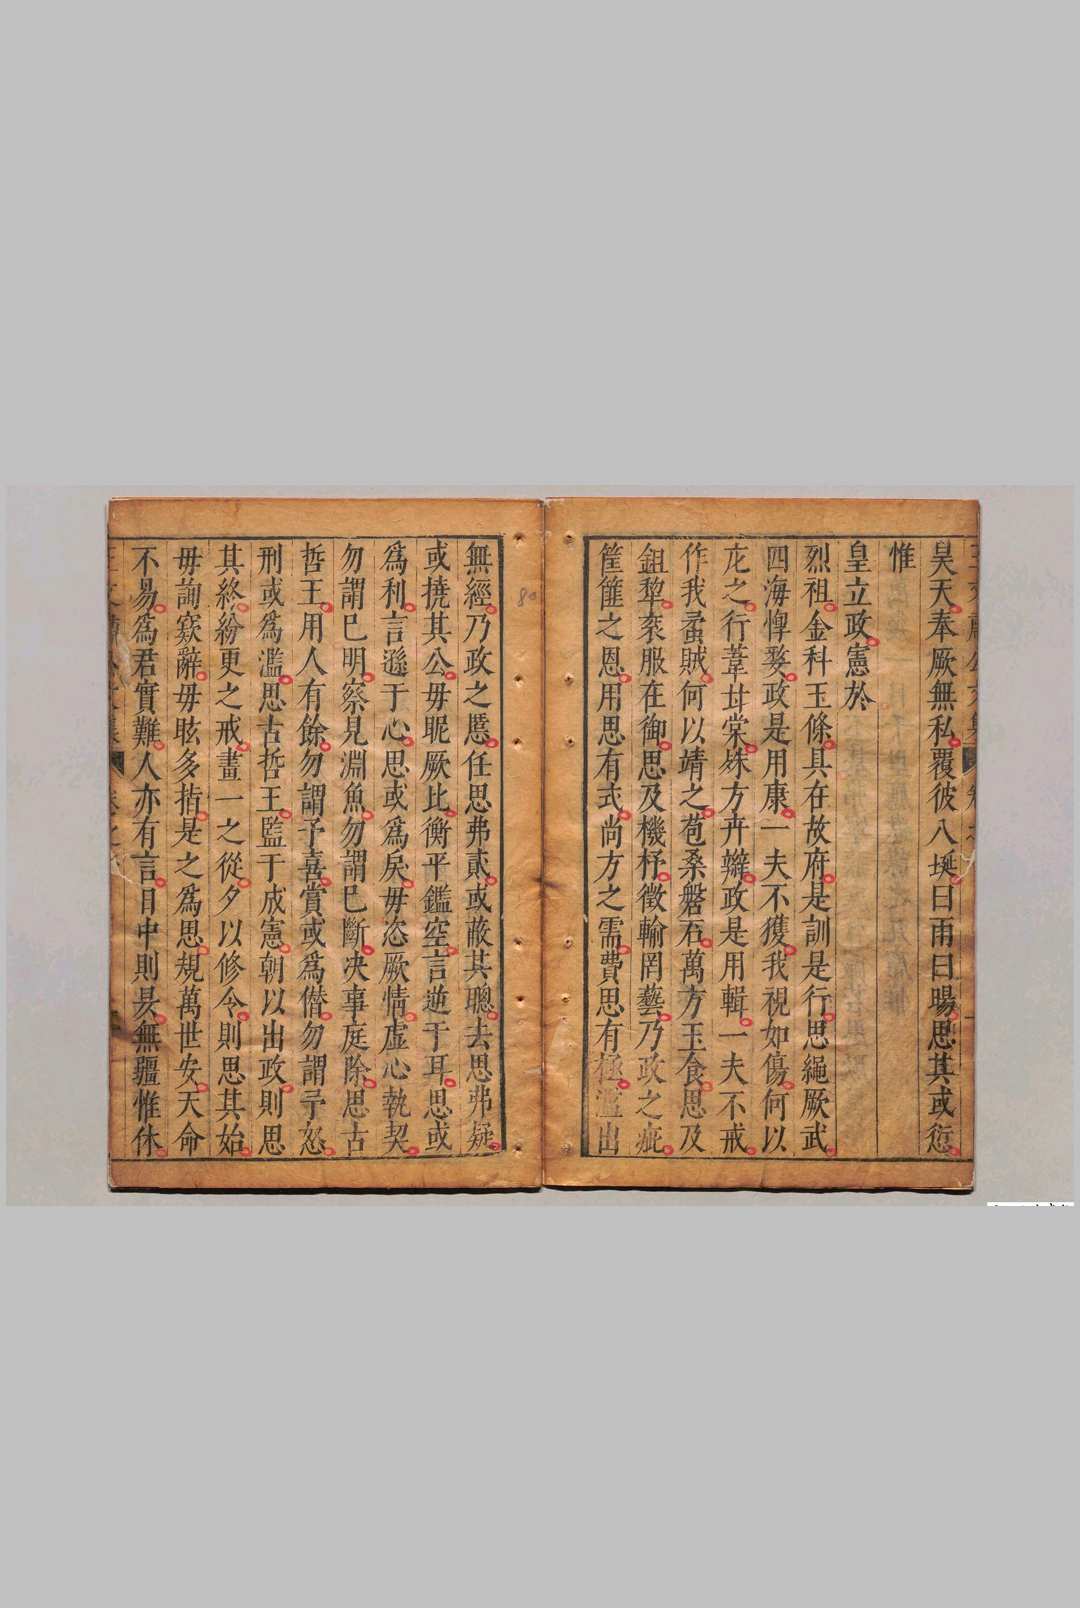 昊天奉厥無私覆彼八埏曰雨曰暘思其或愆
惟
皇立政憲於
烈祖金科玉條具在故府是訓是行思繩厥武
四海惸嫠政是用康一夫不獲我視如傷何以
庇之行葦甘棠殊方卉辮政是用輯一夫不戒
作我蟊賊何以靖之苞桑磐石萬方玉食思及
鉏犂袞服在御思及機杼徵輸罔藝乃政之疵
筐篚之恩用思有式尚方之需費思有極濫出
無經乃政之慝任思弗貳或蔽其聰去思弗疑
或撓其公毋昵厥比衡平鑑空言逆于耳思或
爲利言遜于心思或爲疾毋恣厥情虛心執契
勿謂已明察見淵魚勿謂已斷决事庭除思古
哲王用人有餘勿謂予喜賞或爲僣勿謂予怒
刑或爲濫思古哲王監于成憲朝以出政則思
其終紛更之戒畫一之從夕以修令則思其始
毋詢窾辭毋眩多指是之爲思規萬世安天命
不易爲君實難人亦有言日中則昃無疆惟休
80